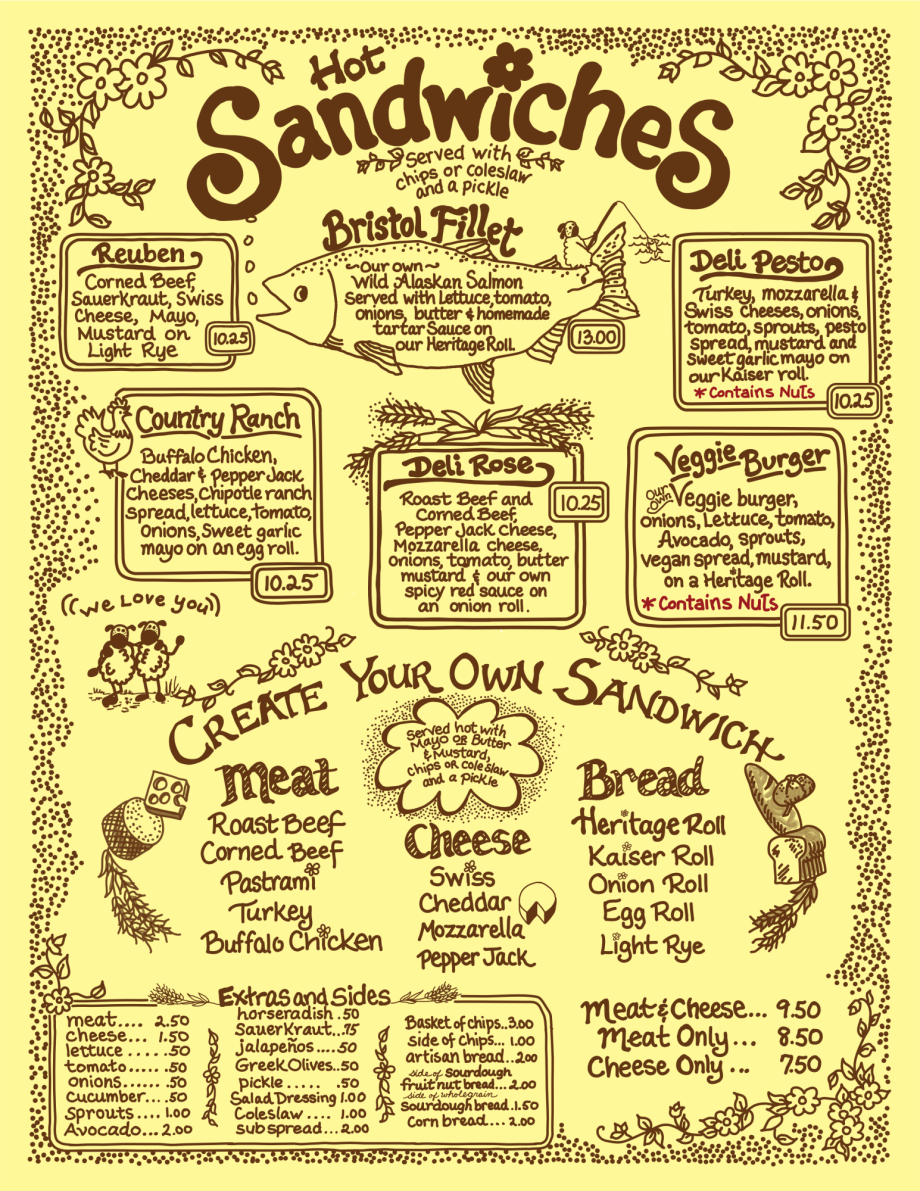 Hot
Sandwiches
Served with
chips or coleslaw
and a pickle
Bristol Fillet
~Our own~
Wild Alaskan Salmon
Served with Lettuce, tomato,
onions, butter & homemade
tartar Sauce on
our Heritage Roll.
13.00
Reuben
Corned Beef,
Sauerkraut, Swiss
Cheese, Mayo,
Mustard on
Light Rye
10.25
Deli Pesto
Turkey, mozzarella &
Swiss Cheeses, onions,
tomato, sprouts, pesto
Spread, mustard and
sweet garlic mayo on
our Kaiser roll.
*Contains Nuts
10.25
Country Ranch
Buffalo Chicken,
Cheddar & Pepper Jack
Cheeses, Chipotle ranch
spread, lettuce, tomato,
Onions, Sweet garlic
mayo on an egg roll.
10.25
Deli Rose
Roast Beef and
Corned Beef,
Pepper Jack Cheese,
Mozzarella cheese,
onions, tomato, butter
mustard & our own
spicy red sauce on
an onion roll.
10.25
Veggie Burger
Our Own Veggie burger,
onions, Lettuce, tomato,
Avocado, sprouts,
vegan spread, mustard,
on a Heritage Roll.
*Contains Nuts
11.50
((We Love you))
Create Your Own Sandwich
Served hot with
Mayo OR Butter
& Mustard,
Chips OR Cole slaw
and a pickle
Meat
Roast Beef
Corned Beef
Pastrami
Turkey
Buffalo Chicken
Cheese
Swiss
Cheddar
Mozzarella
Pepper Jack
Bread
Heritage Roll
Kaiser Roll
Onion Roll
Egg Roll
Light Rye
Extras and Sides
meat.... 2.50
Cheese... 1.50
lettuce ..... .50
tomato..... .50
onions...... .50
cucumber.... .50
Sprouts.... 1.00
Avocado... 2.00
horseradish .50
SauerKraut...75
jalapeños ....50
Greek Olives..50
pickle ..... .50
Salad Dressing 1.00
Coleslaw .... 1.00
sub spread... 2.00
Basket of chips..3.00
side of chips... 1.00
artisan bread..2.00
side of sourdough
fruit nut bread... 2.00
side of wholegrain
sourdough bread.1.50
Corn bread... 2.00
Meat & Cheese... 9.50
Meat Only ... 8.50
Cheese Only ... 7.50